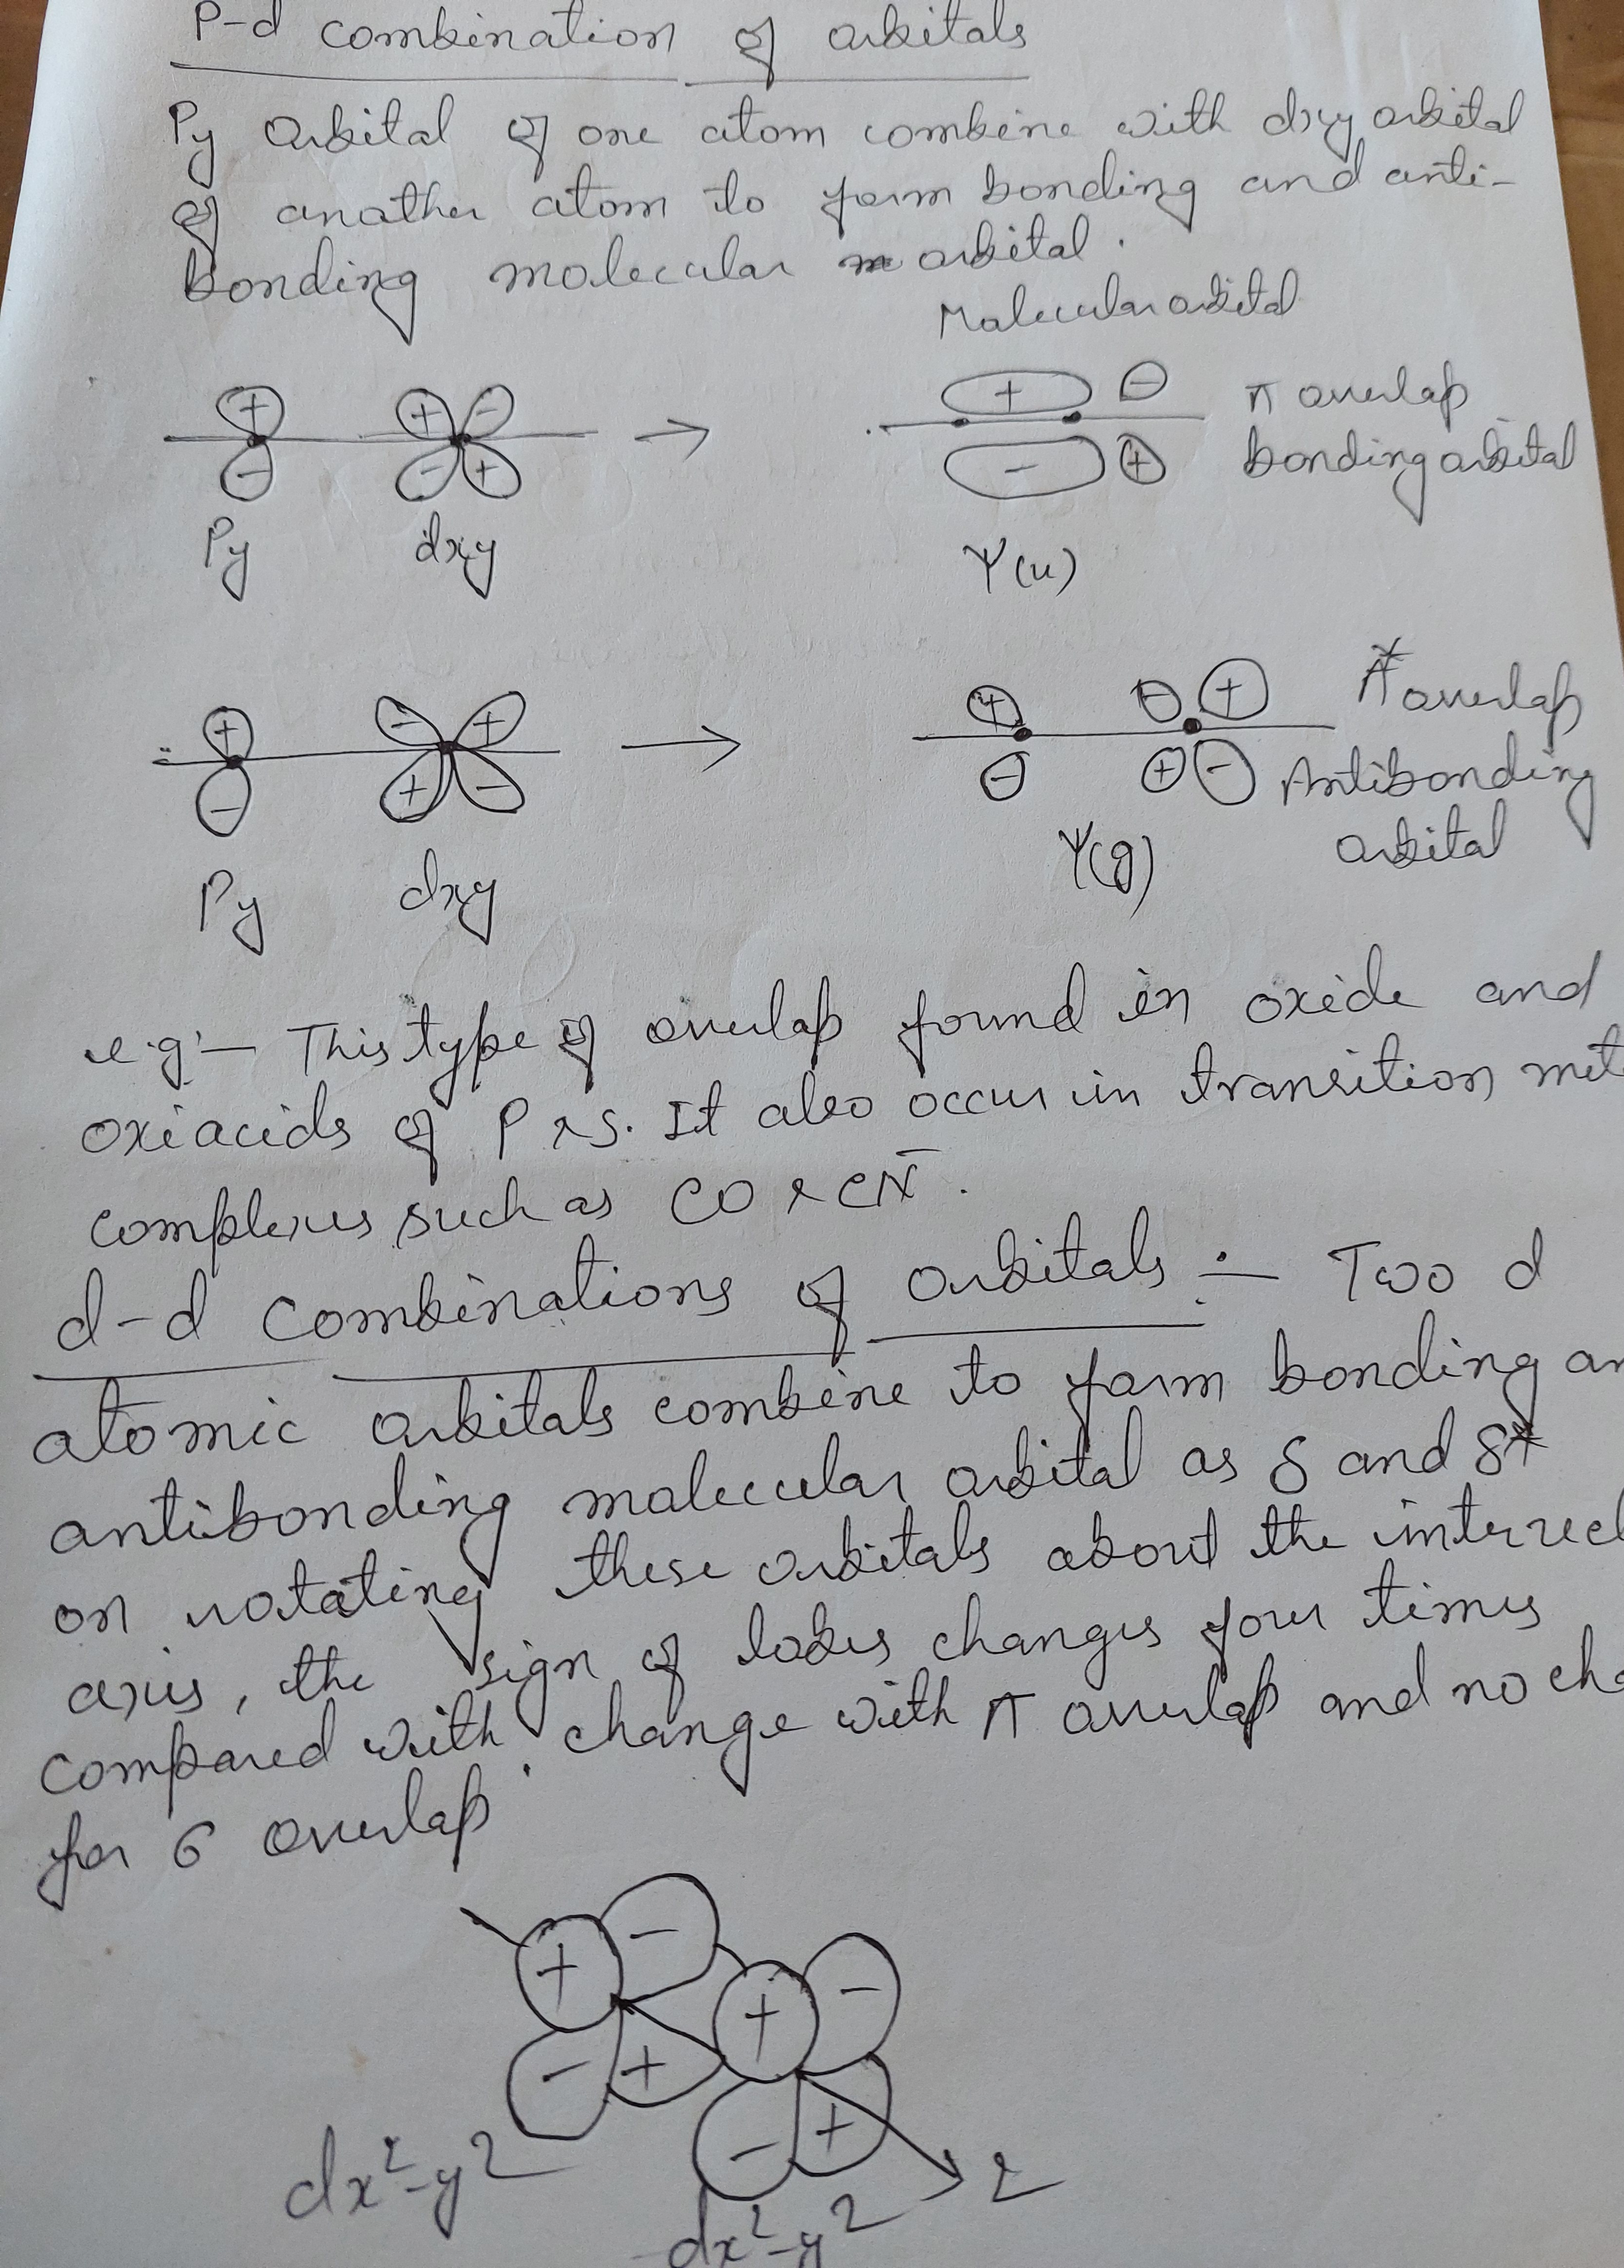 P-d combination of orbitals
Py orbital of one atom combine with dxy orbital
of another atom to form bonding and anti-
bonding molecular orbital.
Molecular orbital
+ + - + - π overlap
- - + - + bonding orbital
Py dxy ψ(u)
+ - + + - + π* overlap
- + - - + - Antibonding
orbital
Py dxy ψ(g)
e.g:- This type of overlap found in oxide and
oxiacids of P & S. It also occur in transition met
complexes such as CO & CN⁻.
d-d combinations of orbitals :- Two d
atomic orbitals combine to form bonding an
antibonding molecular orbital as δ and δ*
on rotating these orbitals about the
axis, the sign of lobes changes four times
compared with change with π overlap and no cha
for σ overlap
+ - + -
- + - +
dx²-y² z
dx²-y²